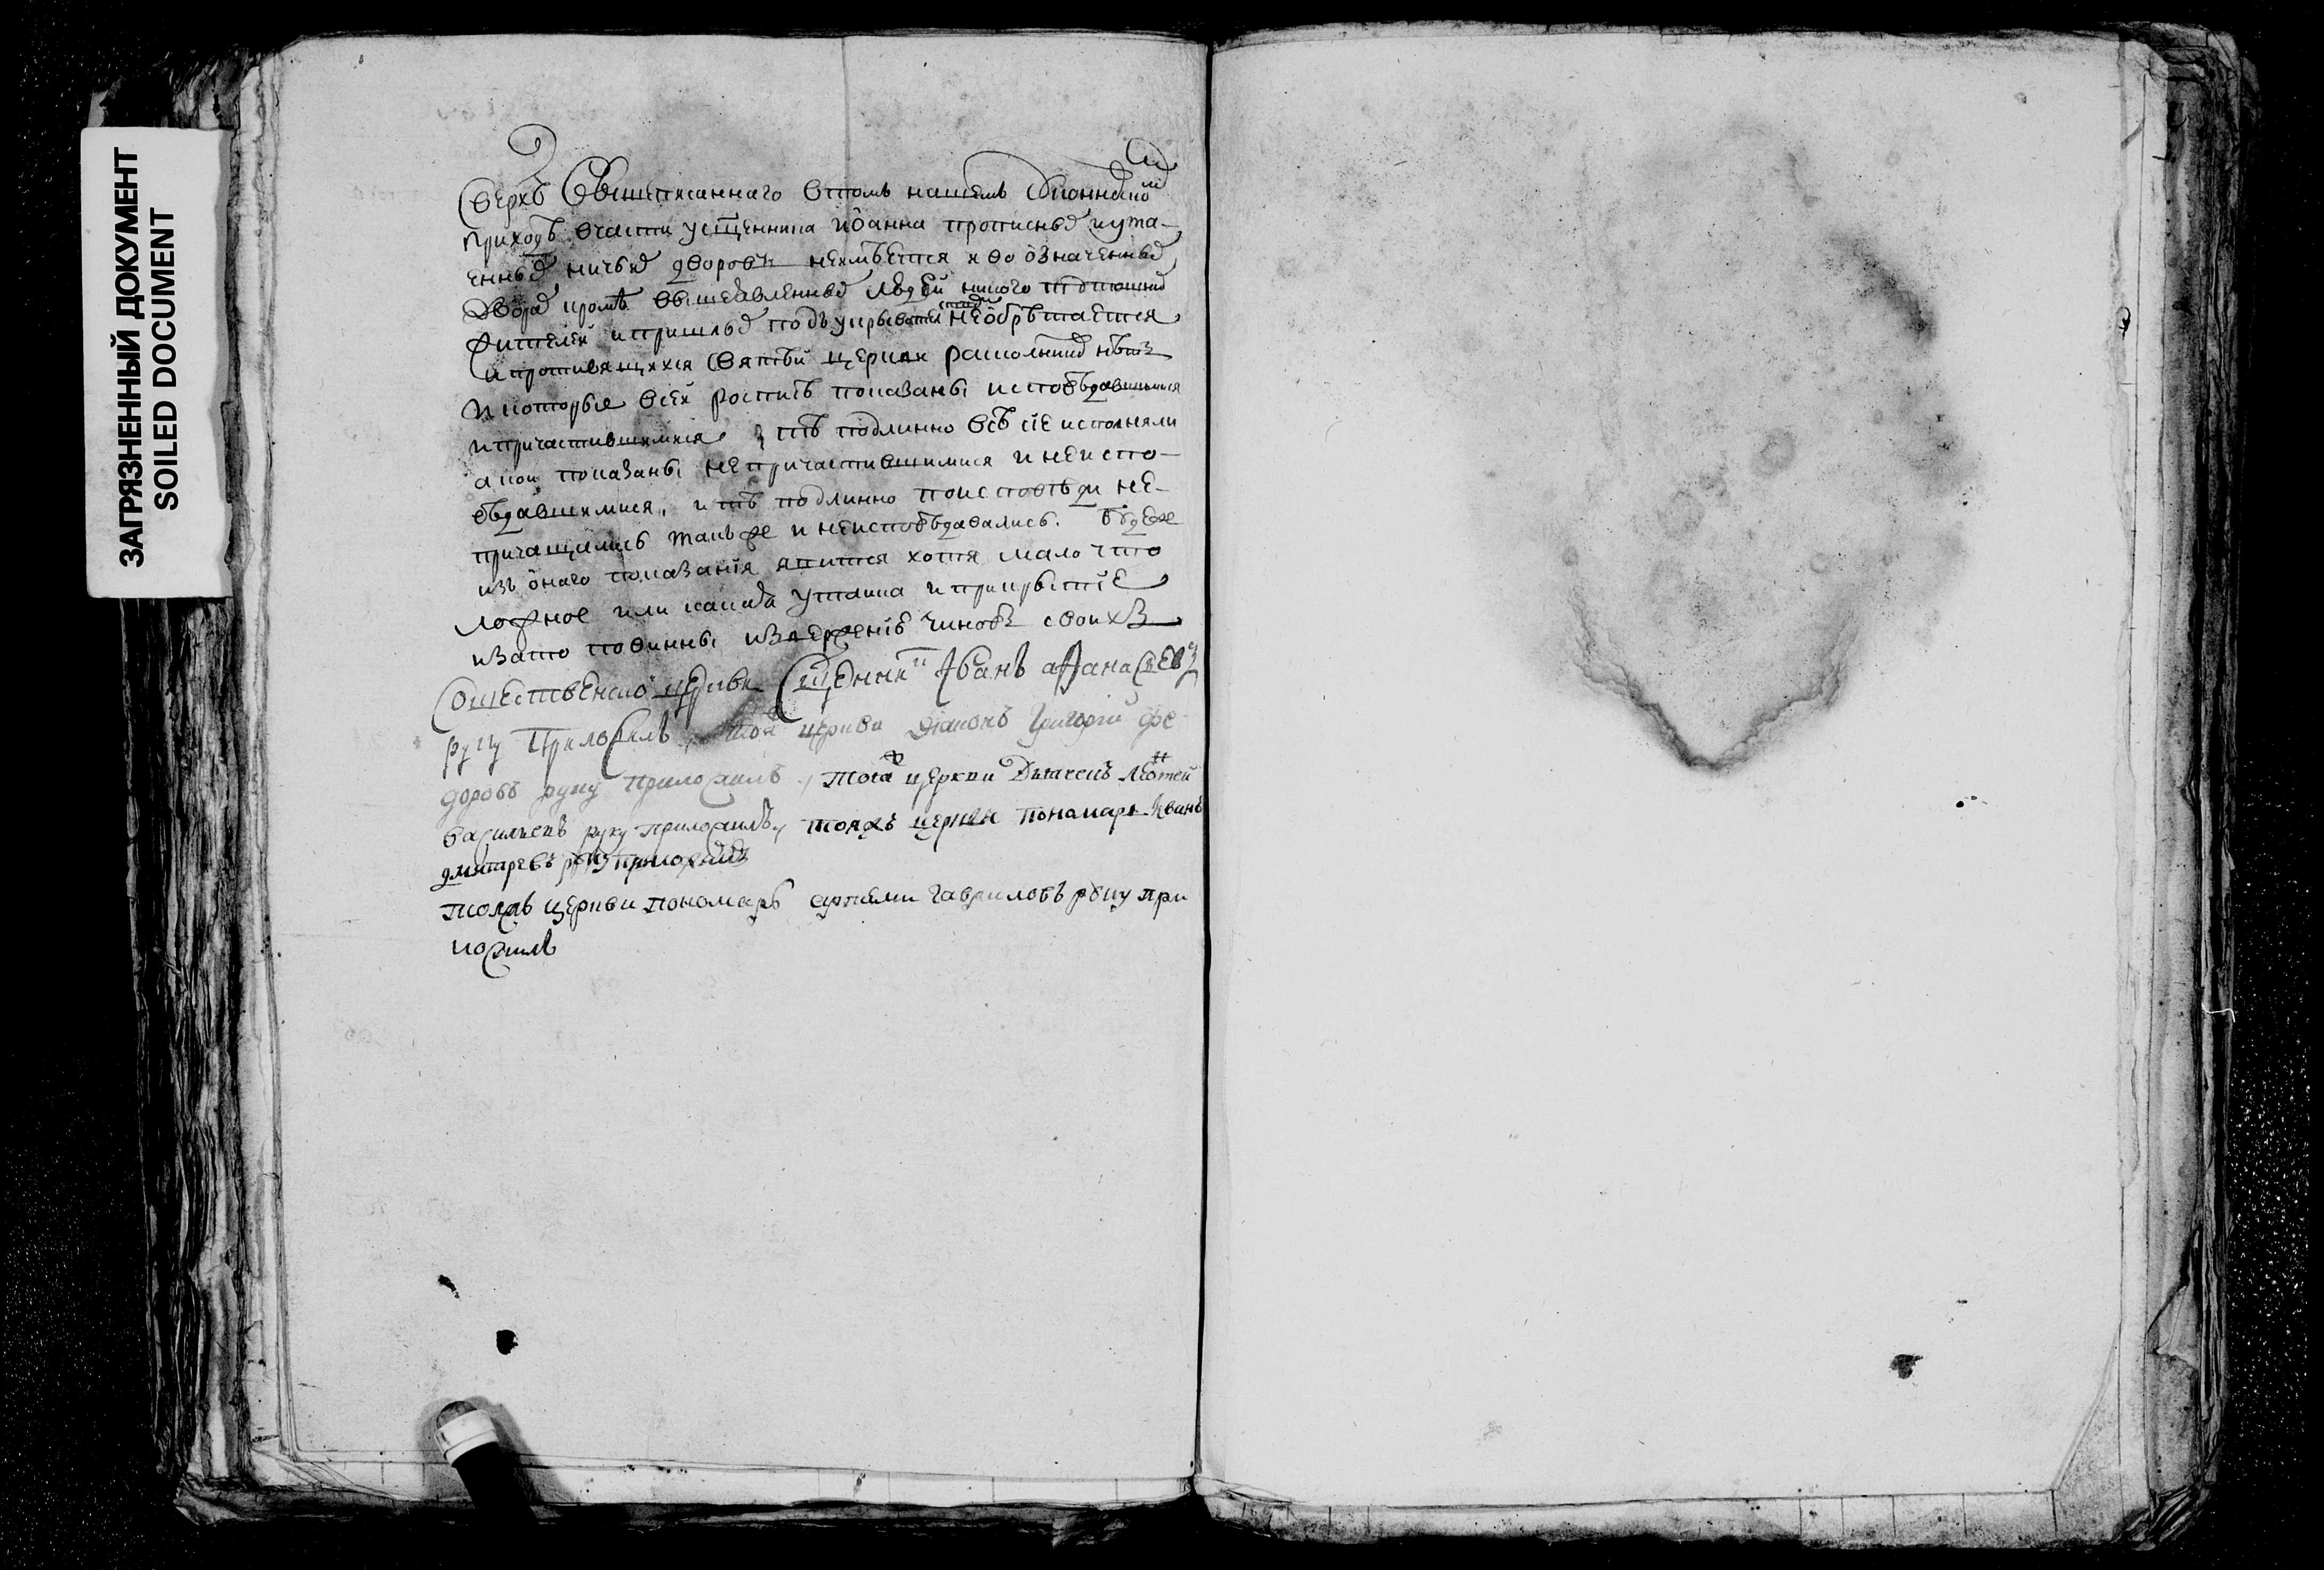 ЗАГРЯЗНЕННЫЙ ДОКУМЕНТ
SOILED DOCUMENT
Сверхъ вышеписаннаго втомъ нашемъ
приходѣ вчасти усщенника иоанна прописныхъ иута-
енныхъ ничьихъ дворовъ неимѣется иво означенныхъ
дворах кромѣ вышеявленныхъ людей никого
жителей ипришлыхъ подъ укрывателствомъ необрѣтается
ипротивящихся святѣй церкви расколниковъ нѣтъ
и которые всей росписѣ показаны исповѣдавшимися
ипричастившимися и тѣ подлинно всѣ сіе исполняли
акои показаны непричастившимися и неиспо-
вѣдавшимися, и тѣ подлинно поисповѣди не-
причащались такъже и неисповѣдавались. буде же
изъ онаго показанія явится хотя мало что
ложное или какая утаика и прикрытіе
изато повинны извержению чиновъ своихъ
церкви сщенникъ Иванъ афанасьевъ
руку приложилъ, тояже церкви диаконъ Григорий фе-
доровъ руку приложилъ, тояже церкви дьячекъ леонтей
васильевъ руку приложилъ, тояжъ церкви пономарь Иванъ
дмитреевъ руку приложилъ
тояжъ церкви пономарь артеми гавриловъ руку при
ложилъ